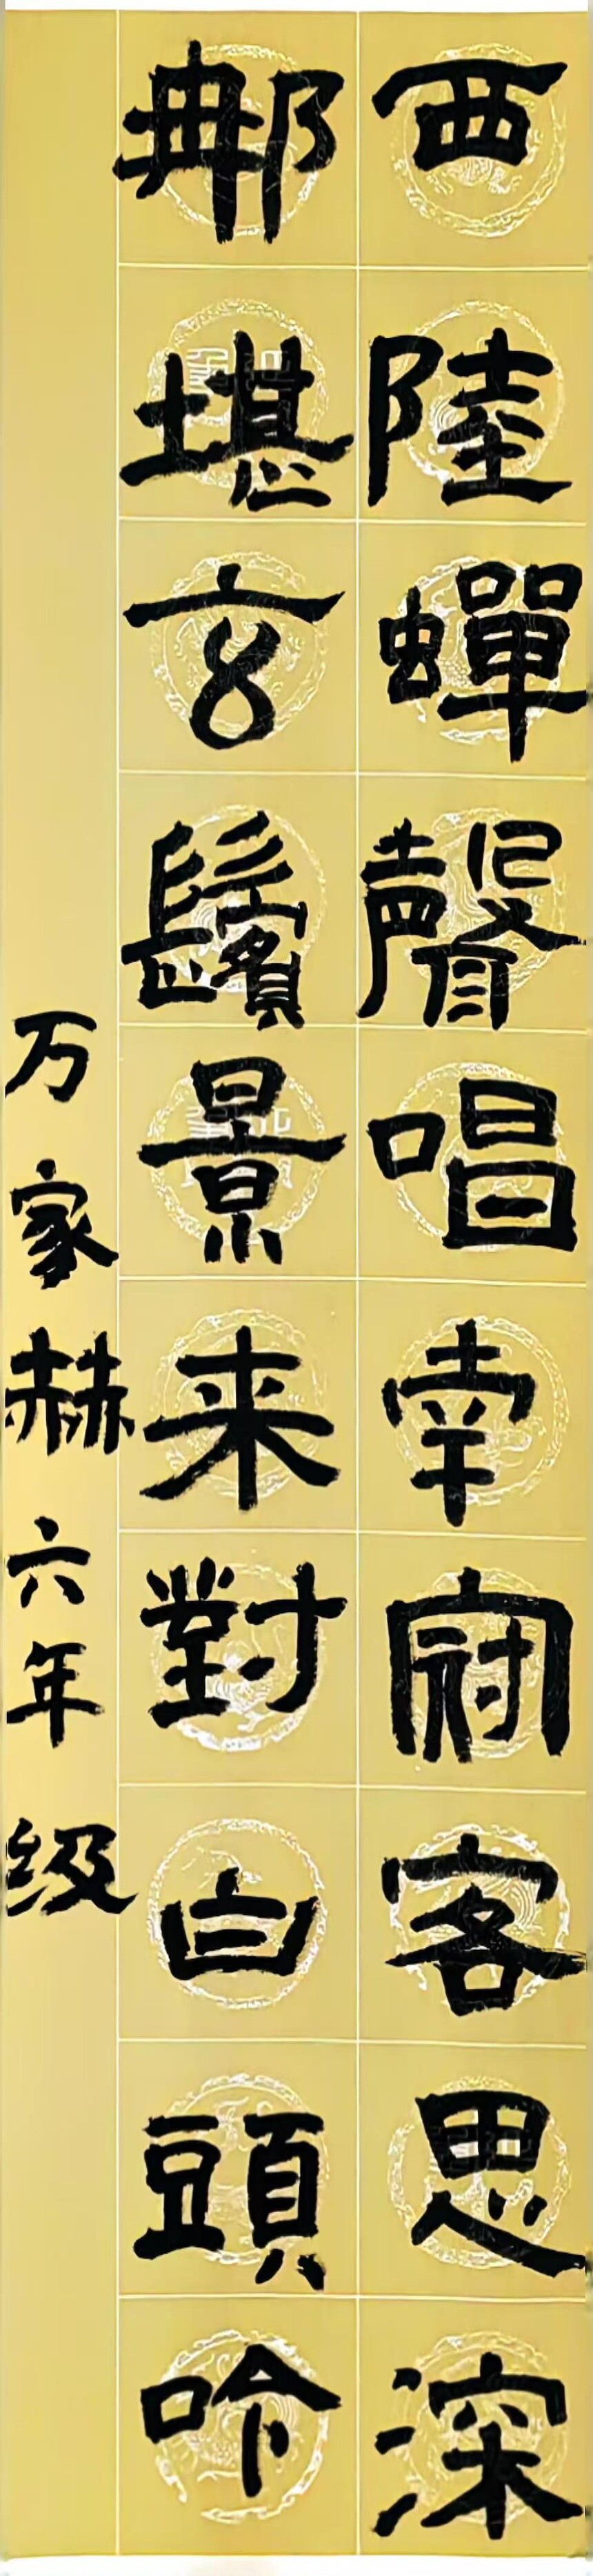 西陸蟬聲唱南冠客思深
那堪玄鬢景来對白頭吟
万家赫六年级